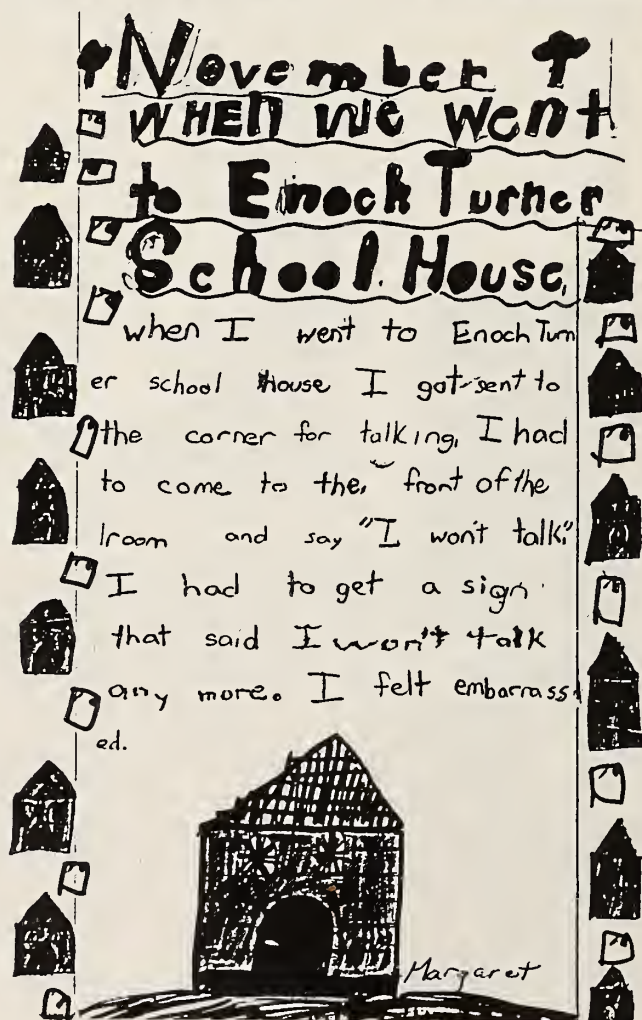 November
WHEN we went
to Enoch Turner
School House.
when I went to Enoch Turn
er school House I got sent to
the corner for talking, I had
to come to the, front of the
room and say "I won't talk."
I had to get a sign
that said I won't talk
any more. I felt embarrass
ed.
Margaret